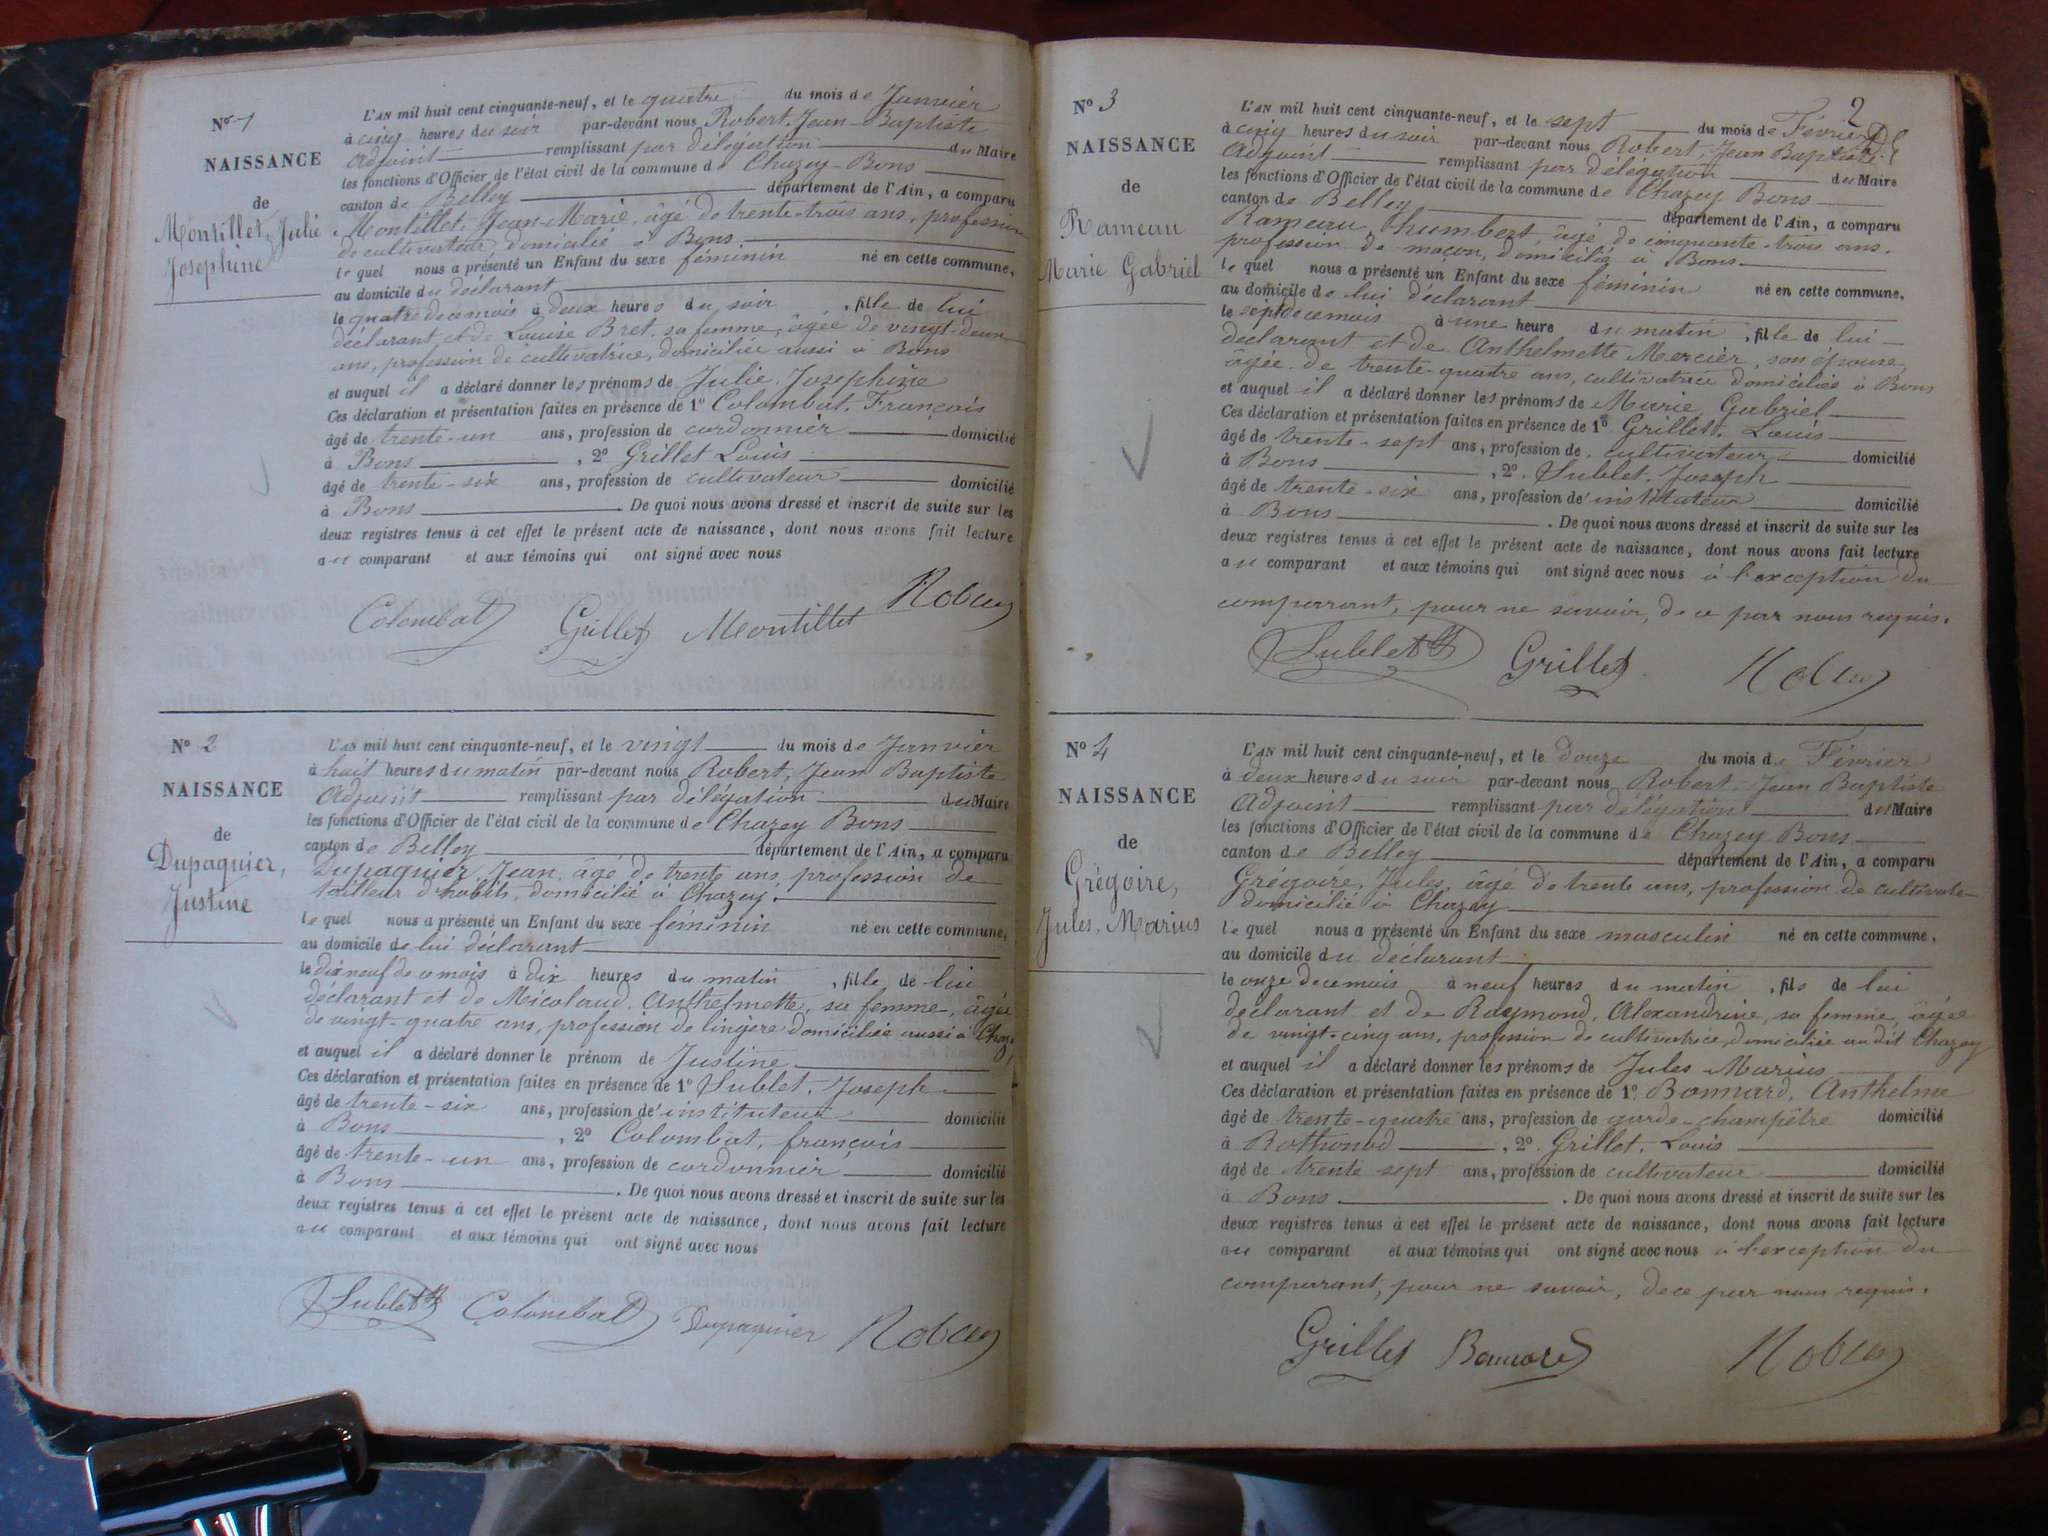 N° 1
NAISSANCE
de
Montillet, Julie
Josephine
L'AN mil huit cent cinquante-neuf, et le quatre du mois de Janvier
à cinq heures du soir par-devant nous Robert, Jean-Baptiste
Adjoint remplissant par délégation du Maire
les fonctions d'Officier de l'état civil de la commune de Chazey-Bons
canton de Belley département de l'Ain, a comparu
Montillet, Jean-Marie, âgé de trente-trois ans, profession
de cultivateur, domicilié à Bons
le quel nous a présenté un Enfant du sexe féminin né en cette commune,
au domicile du déclarant
le quatre de ce mois à deux heures du soir, fille de lui
déclarant et de Louise Bret, sa femme, âgée de vingt-deux
ans, profession de cultivatrice, domiciliée aussi à Bons
et auquel il a déclaré donner les prénoms de Julie, Josephine
Ces déclaration et présentation faites en présence de 1° Colombat, François
âgé de trente-un ans, profession de cordonnier domicilié
à Bons, 2° Grillet Louis
âgé de trente-six ans, profession de cultivateur domicilié
à Bons. De quoi nous avons dressé et inscrit de suite sur les
deux registres tenus à cet effet le présent acte de naissance, dont nous avons fait lecture
au comparant et aux témoins qui ont signé avec nous
Colombat Grillet Montillet Robert
N° 2
NAISSANCE
de
Dupaquier,
Justine
L'AN mil huit cent cinquante-neuf, et le vingt du mois de Janvier
à huit heures du matin par-devant nous Robert, Jean Baptiste
Adjoint remplissant par délégation du Maire
les fonctions d'Officier de l'état civil de la commune de Chazey Bons
canton de Belley département de l'Ain, a comparu
Dupaquier, Jean, âgé de trente ans, profession de
tailleur d'habits, domicilié à Chazey.
le quel nous a présenté un Enfant du sexe féminin né en cette commune,
au domicile de lui déclarant
le dix neuf de ce mois à dix heures du matin, fille de lui
déclarant et de Micoloud, Anthelmette, sa femme, âgée
de vingt-quatre ans, profession de lingère domiciliée aussi à Chazey
et auquel il a déclaré donner le prénom de Justine
Ces déclaration et présentation faites en présence de 1° Sublet, Joseph
âgé de trente-six ans, profession de instituteur domicilié
à Bons, 2° Colombat, françois
âgé de trente-un ans, profession de cordonnier domicilié
à Bons. De quoi nous avons dressé et inscrit de suite sur les
deux registres tenus à cet effet le présent acte de naissance, dont nous avons fait lecture
au comparant et aux témoins qui ont signé avec nous
Sublet Colombat Dupaquier Robert
2
N° 3
NAISSANCE
de
Rameau
Marie Gabriel
L'AN mil huit cent cinquante-neuf, et le sept du mois de Février
à cinq heures du soir par-devant nous Robert, Jean Baptiste
Adjoint remplissant par délégation du Maire
les fonctions d'Officier de l'état civil de la commune de Chazey Bons
canton de Belley département de l'Ain, a comparu
Rameau, humbert, âgé de cinquante-trois ans,
profession de maçon, domicilié à Bons
le quel nous a présenté un Enfant du sexe féminin né en cette commune,
au domicile de lui déclarant
le sept de ce mois à une heure du matin, fille de lui
déclarant et de Anthelmette Mercier, son épouse,
âgée de trente-quatre ans, cultivatrice domiciliée à Bons
et auquel il a déclaré donner les prénoms de Marie, Gabriel
Ces déclaration et présentation faites en présence de 1° Grillet, Louis
âgé de trente-sept ans, profession de cultivateur domicilié
à Bons, 2° Sublet, Joseph
âgé de trente-six ans, profession de instituteur domicilié
à Bons. De quoi nous avons dressé et inscrit de suite sur les
deux registres tenus à cet effet le présent acte de naissance, dont nous avons fait lecture
au comparant et aux témoins qui ont signé avec nous à l'exception du
comparant, pour ne savoir, de ce par nous requis.
Sublet Grillet Robert
N° 4
NAISSANCE
de
Grégoire,
Jules, Marius
L'AN mil huit cent cinquante-neuf, et le douze du mois de Février
à deux heures du soir par-devant nous Robert, Jean Baptiste
Adjoint remplissant par délégation du Maire
les fonctions d'Officier de l'état civil de la commune de Chazey Bons
canton de Belley département de l'Ain, a comparu
Grégoire, Jules, âgé de trente ans, profession de cultivate
domicilié à Chazey
le quel nous a présenté un Enfant du sexe masculin né en cette commune,
au domicile du déclarant
le onze de ce mois à neuf heures du matin, fils de lui
déclarant et de Raymond, Alexandrine, sa femme, âgée
de vingt-cinq ans, profession de cultivatrice, domiciliée au dit Chazey
et auquel il a déclaré donner les prénoms de Jules Marius
Ces déclaration et présentation faites en présence de 1° Bonnard, Anthelme
âgé de trente-quatre ans, profession de garde-champêtre domicilié
à Rothonod, 2° Grillet, Louis
âgé de trente sept ans, profession de cultivateur domicilié
à Bons. De quoi nous avons dressé et inscrit de suite sur les
deux registres tenus à cet effet le présent acte de naissance, dont nous avons fait lecture
au comparant et aux témoins qui ont signé avec nous à l'exception du
comparant, pour ne savoir, de ce par nous requis.
Grillet Bonnard Robert